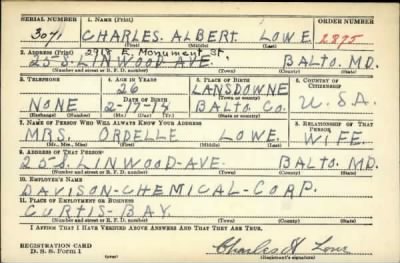 SERIAL NUMBER 1. NAME (Print) ORDER NUMBER
3071 CHARLES. ALBERT LOWE 2895
(First) (Middle) (Last)
2. ADDRESS (Print) 2918 E. Monument St
25-S. LINWOOD AVE. BALTO. MD.
(Number and street or R. F. D. number) (Town) (County) (State)
3. TELEPHONE 4. AGE IN YEARS 5. PLACE OF BIRTH 6. COUNTRY OF CITIZENSHIP
26 LANSDOWNE
DATE OF BIRTH (Town or county)
NONE 2-17-14 BALTO. CO. U.S.A.
(Exchange) (Number) (Mo.) (Day) (Yr.) (State or country)
7. NAME OF PERSON WHO WILL ALWAYS KNOW YOUR ADDRESS 8. RELATIONSHIP OF THAT PERSON
MRS. ORDELLE LOWE. WIFE.
(Mr., Mrs., Miss) (First) (Middle) (Last)
9. ADDRESS OF THAT PERSON
25-S. LINWOOD-AVE. BALTO. MD.
(Number and street or R. F. D. number) (Town) (County) (State)
10. EMPLOYER'S NAME
DAVISON-CHEMICAL-CORP.
11. PLACE OF EMPLOYMENT OR BUSINESS
CURTIS-BAY.
(Number and street or R. F. D. number) (Town) (County) (State)
I AFFIRM THAT I HAVE VERIFIED ABOVE ANSWERS AND THAT THEY ARE TRUE.
REGISTRATION CARD
D. S. S. Form 1 (over) Charles A Lowe
(Registrant's signature)